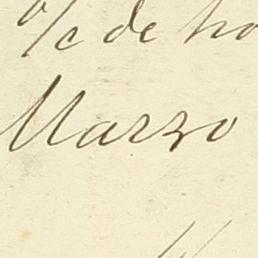 o/c de
Marzo